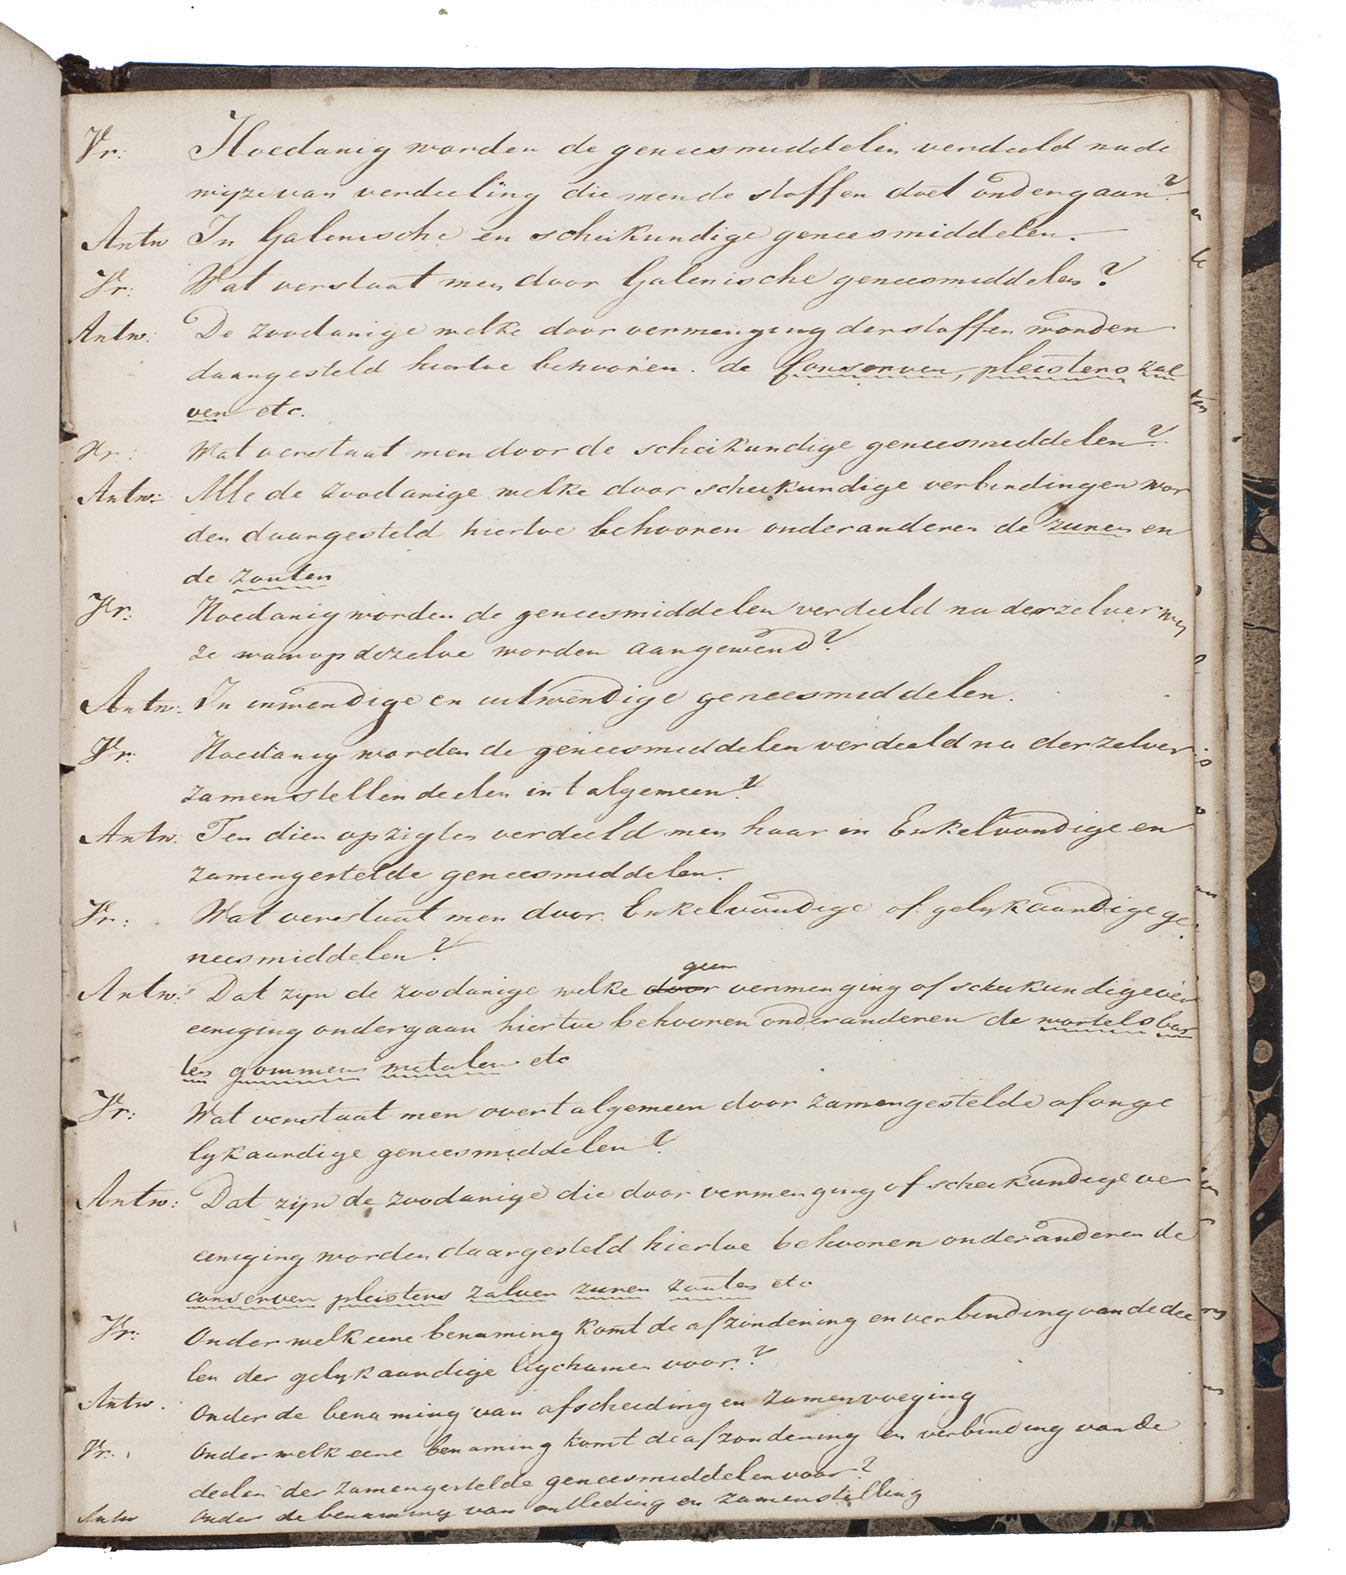 Vr: Hoedanig worden de geneesmiddelen verdeeld na de
wijze van verdeeling die men de stoffen doet ondergaan?
Antw In Galenische en scheikundige geneesmiddelen.
Vr: Wat verstaat men door Galenische geneesmiddelen?
Antw: De zoodanige welke door vermenging der stoffen worden
daargesteld hiertoe behooren. de Conserven, pleisters zal
ven etc.
Vr: Wat verstaat men door de scheikundige geneesmiddelen?
Antw: Alle de zoodanige welke door scheikundige verbindingen wor
den daargesteld hiertoe behooren onderanderen de zuren en
de zouten
Vr: Hoedanig worden de geneesmiddelen verdeeld na derzelver wij
ze waarop dezelve worden aangewend?
Antw: In inwendige en uitwendige geneesmiddelen.
Vr: Hoedanig worden de geneesmiddelen verdeeld na derzelver
zamenstellen deelen in t algemeen?
Antw: Ten dien opzigten verdeeld men haar in Enkelvoudige en
zamengestelde geneesmiddelen.
Vr: Wat verstaat men door Enkelvoudige of gelykaardige ge
neesmiddelen?
Antw: Dat zijn de zoodanige welke door geen vermenging of scheikundige ver
eeniging ondergaan hiertoe behooren onderanderen de wortels bas
ten gommen metalen etc
Vr: Wat verstaat men over t algemeen door zamengestelde of onge
lykaardige geneesmiddelen?
Antw: Dat zijn de zoodanige die door vermenging of scheikundige ver
eeniging worden daargesteld hiertoe behooren onderanderen de
conserven pleisters zalven zuren zouten etc
Vr: Onder welk eene benaming komt de afzondering en verbinding van de dee
len der gelykaardige ligchamen voor?
Antw. Onder de benaming van afscheiding en zamenvoeging
Vr: Onder welk eene benaming komt de afzondering en verbinding van de
deelen der zamengestelde geneesmiddelen voor?
Antw Onder de benaming van ontleding en zamenstelling